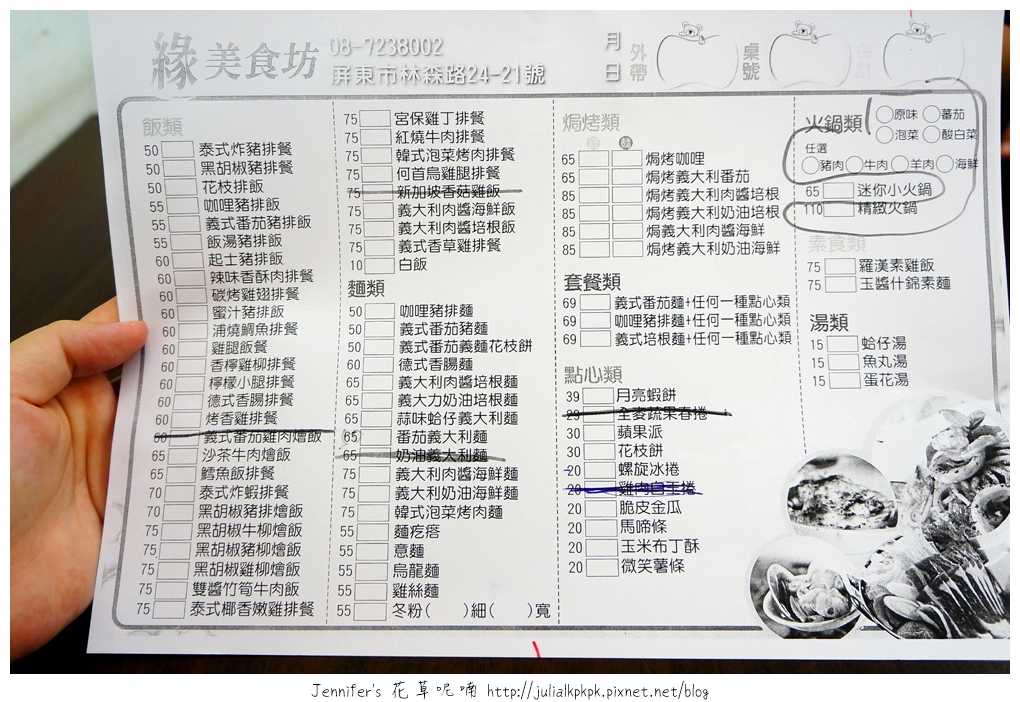 緣 美食坊 08-7238002
屏東市林森路24-21號
月
日
外帶
桌號
合計
飯類
50 泰式炸豬排餐
50 黑胡椒豬排餐
50 花枝排飯
55 咖哩豬排飯
55 義式番茄豬排飯
55 飯湯豬排飯
60 起士豬排飯
60 辣味香酥肉排餐
60 碳烤雞翅排餐
60 蜜汁豬排飯
60 浦燒鯛魚排餐
60 雞腿飯餐
60 香檸雞柳排餐
60 檸檬小腿排餐
60 德式香腸排餐
60 烤香雞排餐
60 義式番茄雞肉燴飯
65 沙茶牛肉燴飯
65 鱈魚飯排餐
70 泰式炸蝦排餐
70 黑胡椒豬排燴飯
75 黑胡椒牛柳燴飯
75 黑胡椒豬柳燴飯
75 黑胡椒雞柳燴飯
75 雙醬竹筍牛肉飯
75 泰式椰香嫩雞排餐
75 宮保雞丁排餐
75 紅燒牛肉排餐
75 韓式泡菜烤肉排餐
75 何首烏雞腿排餐
75 新加坡香菇雞飯
75 義大利肉醬海鮮飯
75 義大利肉醬培根飯
75 義式香草雞排餐
10 白飯
麵類
50 咖哩豬排麵
50 義式番茄豬麵
50 義式番茄義麵花枝餅
60 德式香腸麵
65 義大利肉醬培根麵
65 義大力奶油培根麵
65 蒜味蛤仔義大利麵
65 番茄義大利麵
65 奶油義大利麵
75 義大利肉醬海鮮麵
75 義大利奶油海鮮麵
75 韓式泡菜烤肉麵
55 麵疙瘩
55 意麵
55 烏龍麵
55 雞絲麵
55 冬粉( )細( )寬
焗烤類
飯 麵
65 焗烤咖哩
65 焗烤義大利番茄
85 焗烤義大利肉醬培根
85 焗烤義大利奶油培根
85 焗義大利肉醬海鮮
85 焗烤義大利奶油海鮮
套餐類
69 義式番茄麵+任何一種點心類
69 咖哩豬排麵+任何一種點心類
69 義式培根麵+任何一種點心類
點心類
39 月亮蝦餅
29 全麥蔬果春捲
30 蘋果派
30 花枝餅
20 螺旋冰捲
20 雞肉白玉捲
20 脆皮金瓜
20 馬啼條
20 玉米布丁酥
20 微笑薯條
火鍋類 原味 番茄
泡菜 酸白菜
任選
豬肉 牛肉 羊肉 海鮮
65 迷你小火鍋
110 精緻火鍋
素食類
75 羅漢素雞飯
75 玉醬什錦素麵
湯類
15 蛤仔湯
15 魚丸湯
15 蛋花湯
Jennifer's 花草呢喃 http://julialkpkpk.pixnet.net/blog